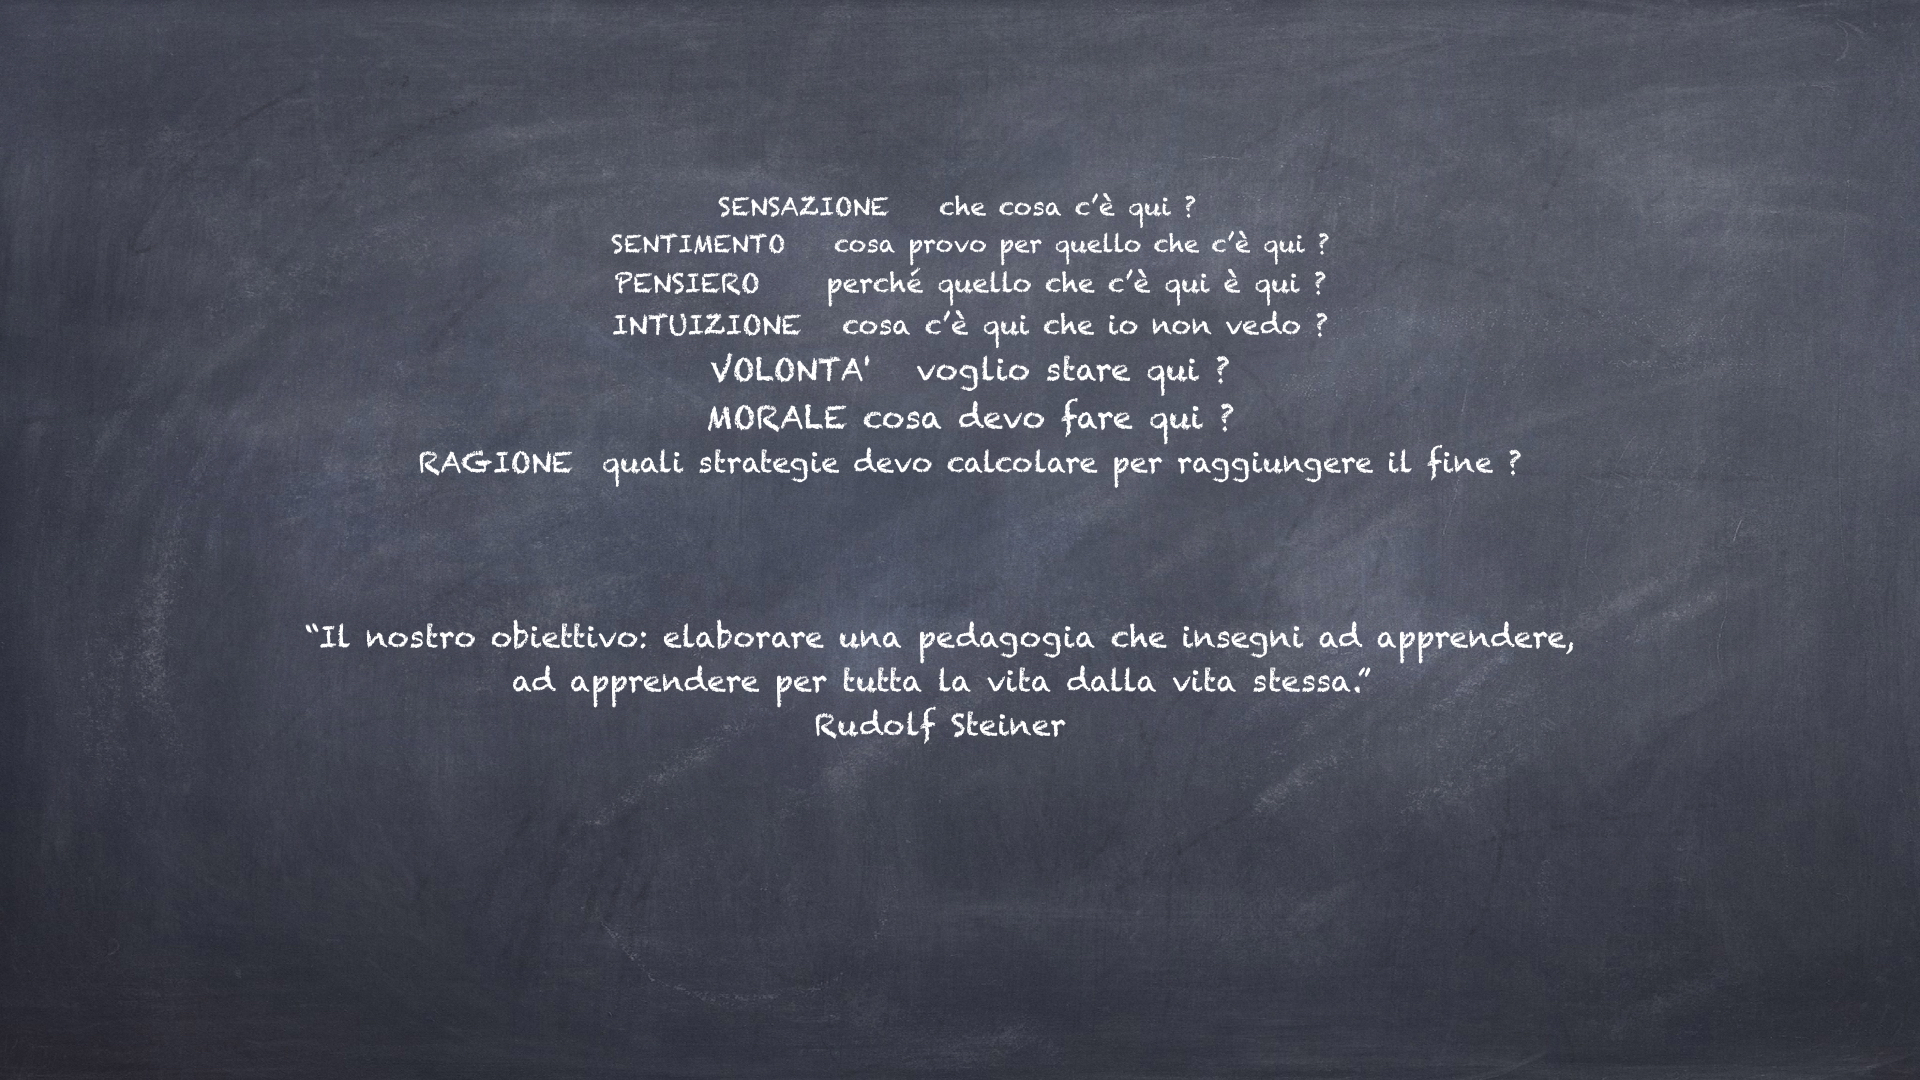 SENSAZIONE che cosa c’è qui ?
SENTIMENTO cosa provo per quello che c’è qui ?
PENSIERO perché quello che c’è qui è qui ?
INTUIZIONE cosa c’è qui che io non vedo ?
VOLONTA' voglio stare qui ?
MORALE cosa devo fare qui ?
RAGIONE quali strategie devo calcolare per raggiungere il fine ?
“Il nostro obiettivo: elaborare una pedagogia che insegni ad apprendere,
ad apprendere per tutta la vita dalla vita stessa.”
Rudolf Steiner